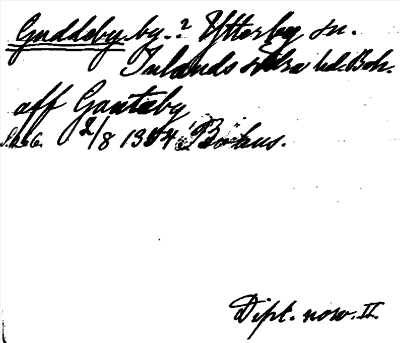 Guddeby by.? Ytterby sn.
Inlands södra hd. Boh.
aff Gauteby
S. 266. 2/8 1354 Bohus.
Dipl. norv. II.